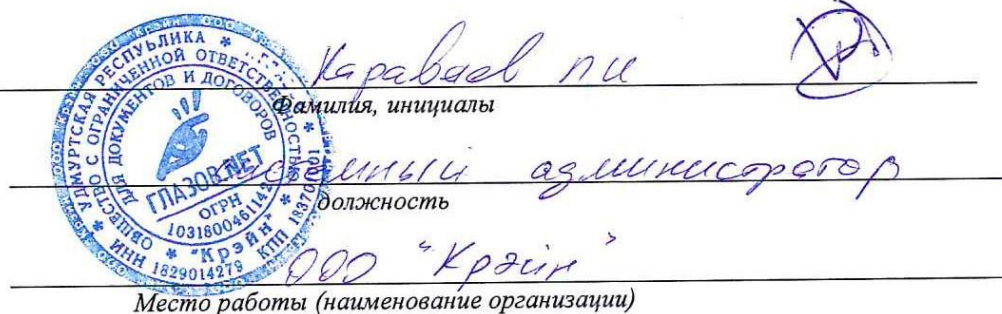 Караваев ПИ
Фамилия, инициалы
системный администратор
должность
ООО "Крэйн"
Место работы (наименование организации)
* УДМУРТСКАЯ РЕСПУБЛИКА *
ОБЩЕСТВО С ОГРАНИЧЕННОЙ ОТВЕТСТВЕННОСТЬЮ
ДЛЯ ДОКУМЕНТОВ И ДОГОВОРОВ
ГЛАЗОВ.NET
ОГРН
1031800461142
* "Крэйн" *
ИНН 1829014279 КПП